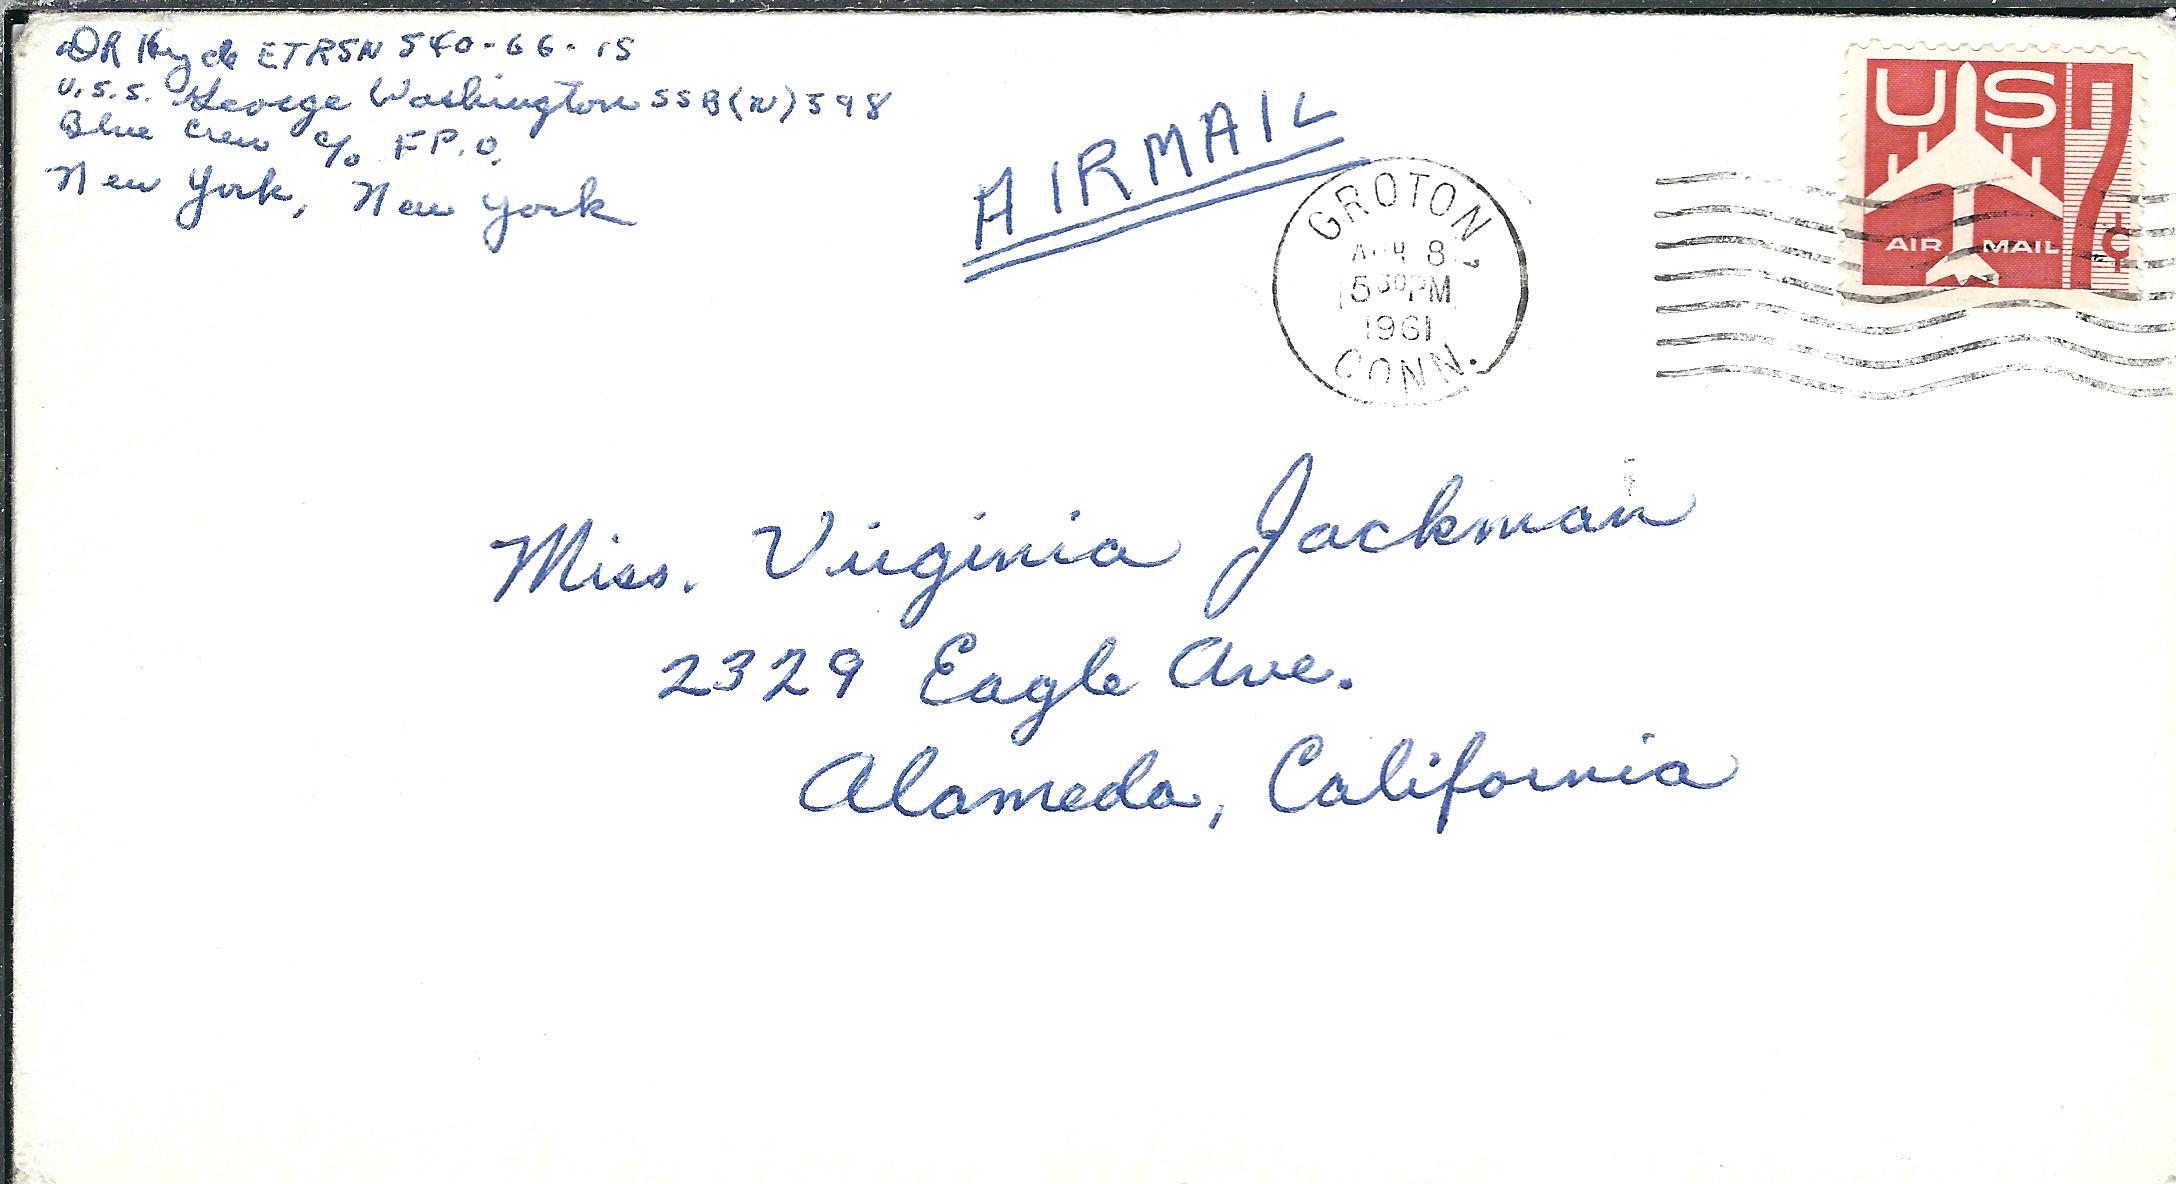 DR Hyde ETRSN 540-66-15
U.S.S. George Washington SSB(N)598
Blue Crew c/o F.P.O.
New York, New York
AIRMAIL
GROTON
8
5 30 PM
1961
CONN.
US
7¢
AIR MAIL
Miss. Virginia Jackman
2329 Eagle Ave.
Alameda, California